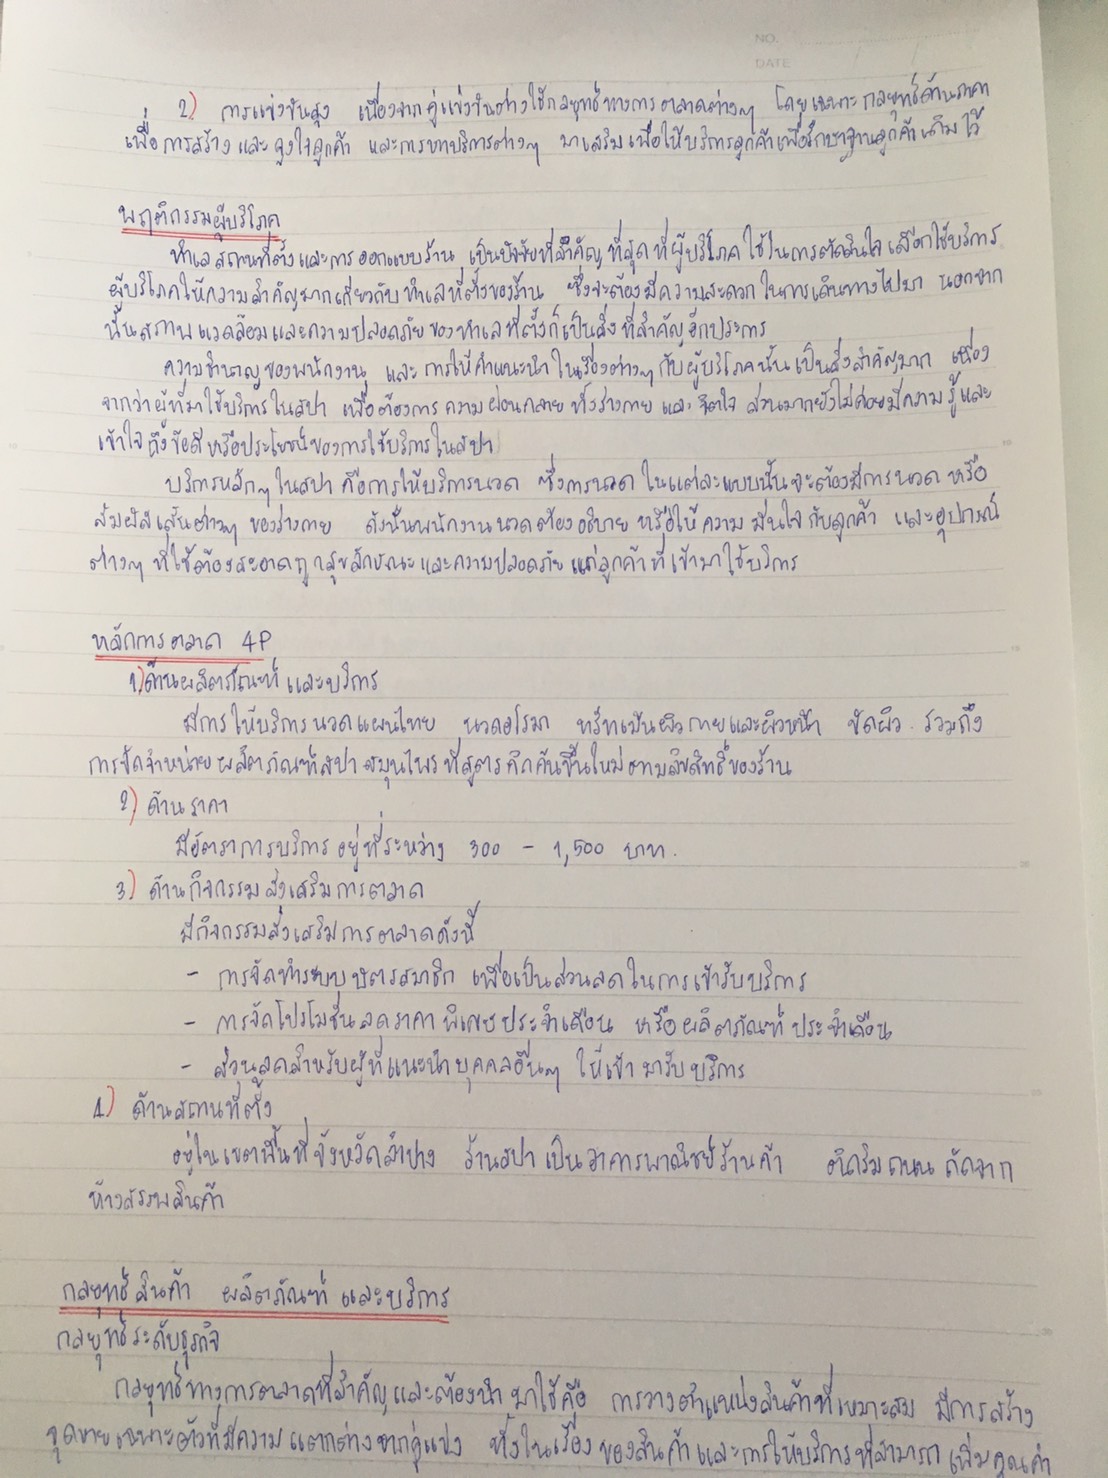 NO.
DATE
2) การแข่งขันสูง เนื่องจากคู่แข่งขันต่างใช้กลยุทธ์ทางการตลาดต่างๆ โดยเฉพาะกลยุทธ์ด้านราคา
เพื่อการสร้างและจูงใจลูกค้า และการหาบริการต่างๆ มาเสริมเพื่อให้บริการลูกค้าเพื่อรักษาฐานลูกค้าเดิมไว้
พฤติกรรมผู้บริโภค
ทำเลสถานที่ตั้งและการออกแบบร้าน เป็นปัจจัยที่สำคัญที่สุดที่ผู้บริโภคใช้ในการตัดสินใจเลือกใช้บริการ
ผู้บริโภคให้ความสำคัญมากเกี่ยวกับทำเลที่ตั้งของร้าน ซึ่งจะต้องมีความสะดวกในการเดินทางไปมา นอกจาก
นั้นสภาพแวดล้อมและความปลอดภัยของทำเลที่ตั้งก็เป็นสิ่งที่สำคัญอีกประการ
ความชำนาญของพนักงาน และการให้คำแนะนำในเรื่องต่างๆกับผู้บริโภคนั้นเป็นสิ่งสำคัญมาก เนื่อง
จากว่าผู้ที่มาใช้บริการในสปา เพื่อต้องการความผ่อนคลายทั้งร่างกายและจิตใจ ส่วนมากยังไม่ค่อยมีความรู้และ
เข้าใจถึงข้อดีหรือประโยชน์ของการใช้บริการในสปา
บริการหลักๆในสปา คือการให้บริการนวด ซึ่งการนวดในแต่ละแบบนั้นจะต้องมีการนวดหรือ
สัมผัสเส้นต่างๆ ของร่างกาย ดังนั้นพนักงานนวดต้องอธิบายหรือให้ความมั่นใจกับลูกค้า และอุปกรณ์
ต่างๆ ที่ใช้ต้องสะอาดถูกสุขลักษณะและความปลอดภัยแก่ลูกค้าที่เข้ามาใช้บริการ
หลักการตลาด 4P
1) ด้านผลิตภัณฑ์และบริการ
มีการให้บริการนวดแผนไทย นวดอโรมา ทรีทเม้นผิวกายและผิวหน้า ขัดผิว รวมถึง
การจัดจำหน่ายผลิตภัณฑ์สปาสมุนไพรที่สูตรคิดค้นขึ้นใหม่ตามลิขสิทธิ์ของร้าน
2) ด้านราคา
มีอัตราการบริการอยู่ที่ระหว่าง 300 - 1,500 บาท.
3) ด้านกิจกรรมส่งเสริมการตลาด
มีกิจกรรมส่งเสริมการตลาดดังนี้
- การจัดทำระบบบัตรสมาชิก เพื่อเป็นส่วนลดในการเข้ารับบริการ
- การจัดโปรโมชั่นลดราคาพิเศษประจำเดือน หรือผลิตภัณฑ์ประจำเดือน
- ส่วนลดสำหรับผู้ที่แนะนำบุคคลอื่นๆ ให้เข้ามารับบริการ
4) ด้านสถานที่ตั้ง
อยู่ในเขตพื้นที่จังหวัดลำปาง ร้านสปาเป็นอาคารพาณิชย์ร้านค้า ติดริมถนนถัดจาก
ห้างสรรพสินค้า
กลยุทธ์สินค้า ผลิตภัณฑ์ และบริการ
กลยุทธ์ระดับธุรกิจ
กลยุทธ์ทางการตลาดที่สำคัญและต้องนำมาใช้คือ การวางตำแหน่งสินค้าที่เหมาะสม มีการสร้าง
จุดขายเฉพาะตัวที่มีความแตกต่างจากคู่แข่ง ทั้งในเรื่องของสินค้าและการให้บริการที่สามารถเพิ่มคุณค่า